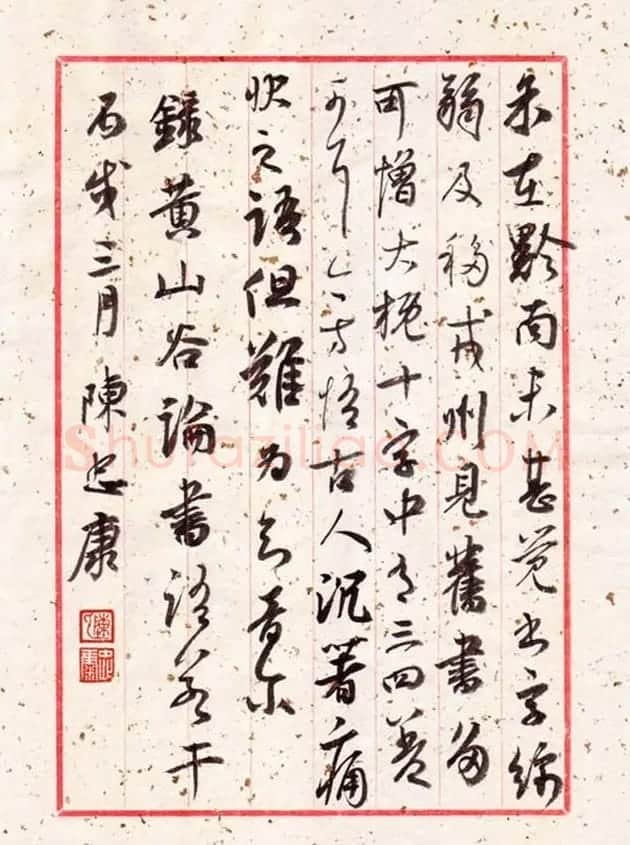 余在黔南未甚覺書字綿
弱及移戎州見舊書多
可憎大概十字中有三四差
可耳今方悟古人沉著痛
快之語但難為知音尔
録黃山谷論書語若干
丙戌三月陳忠康
忠康
Shufaziliao.COM